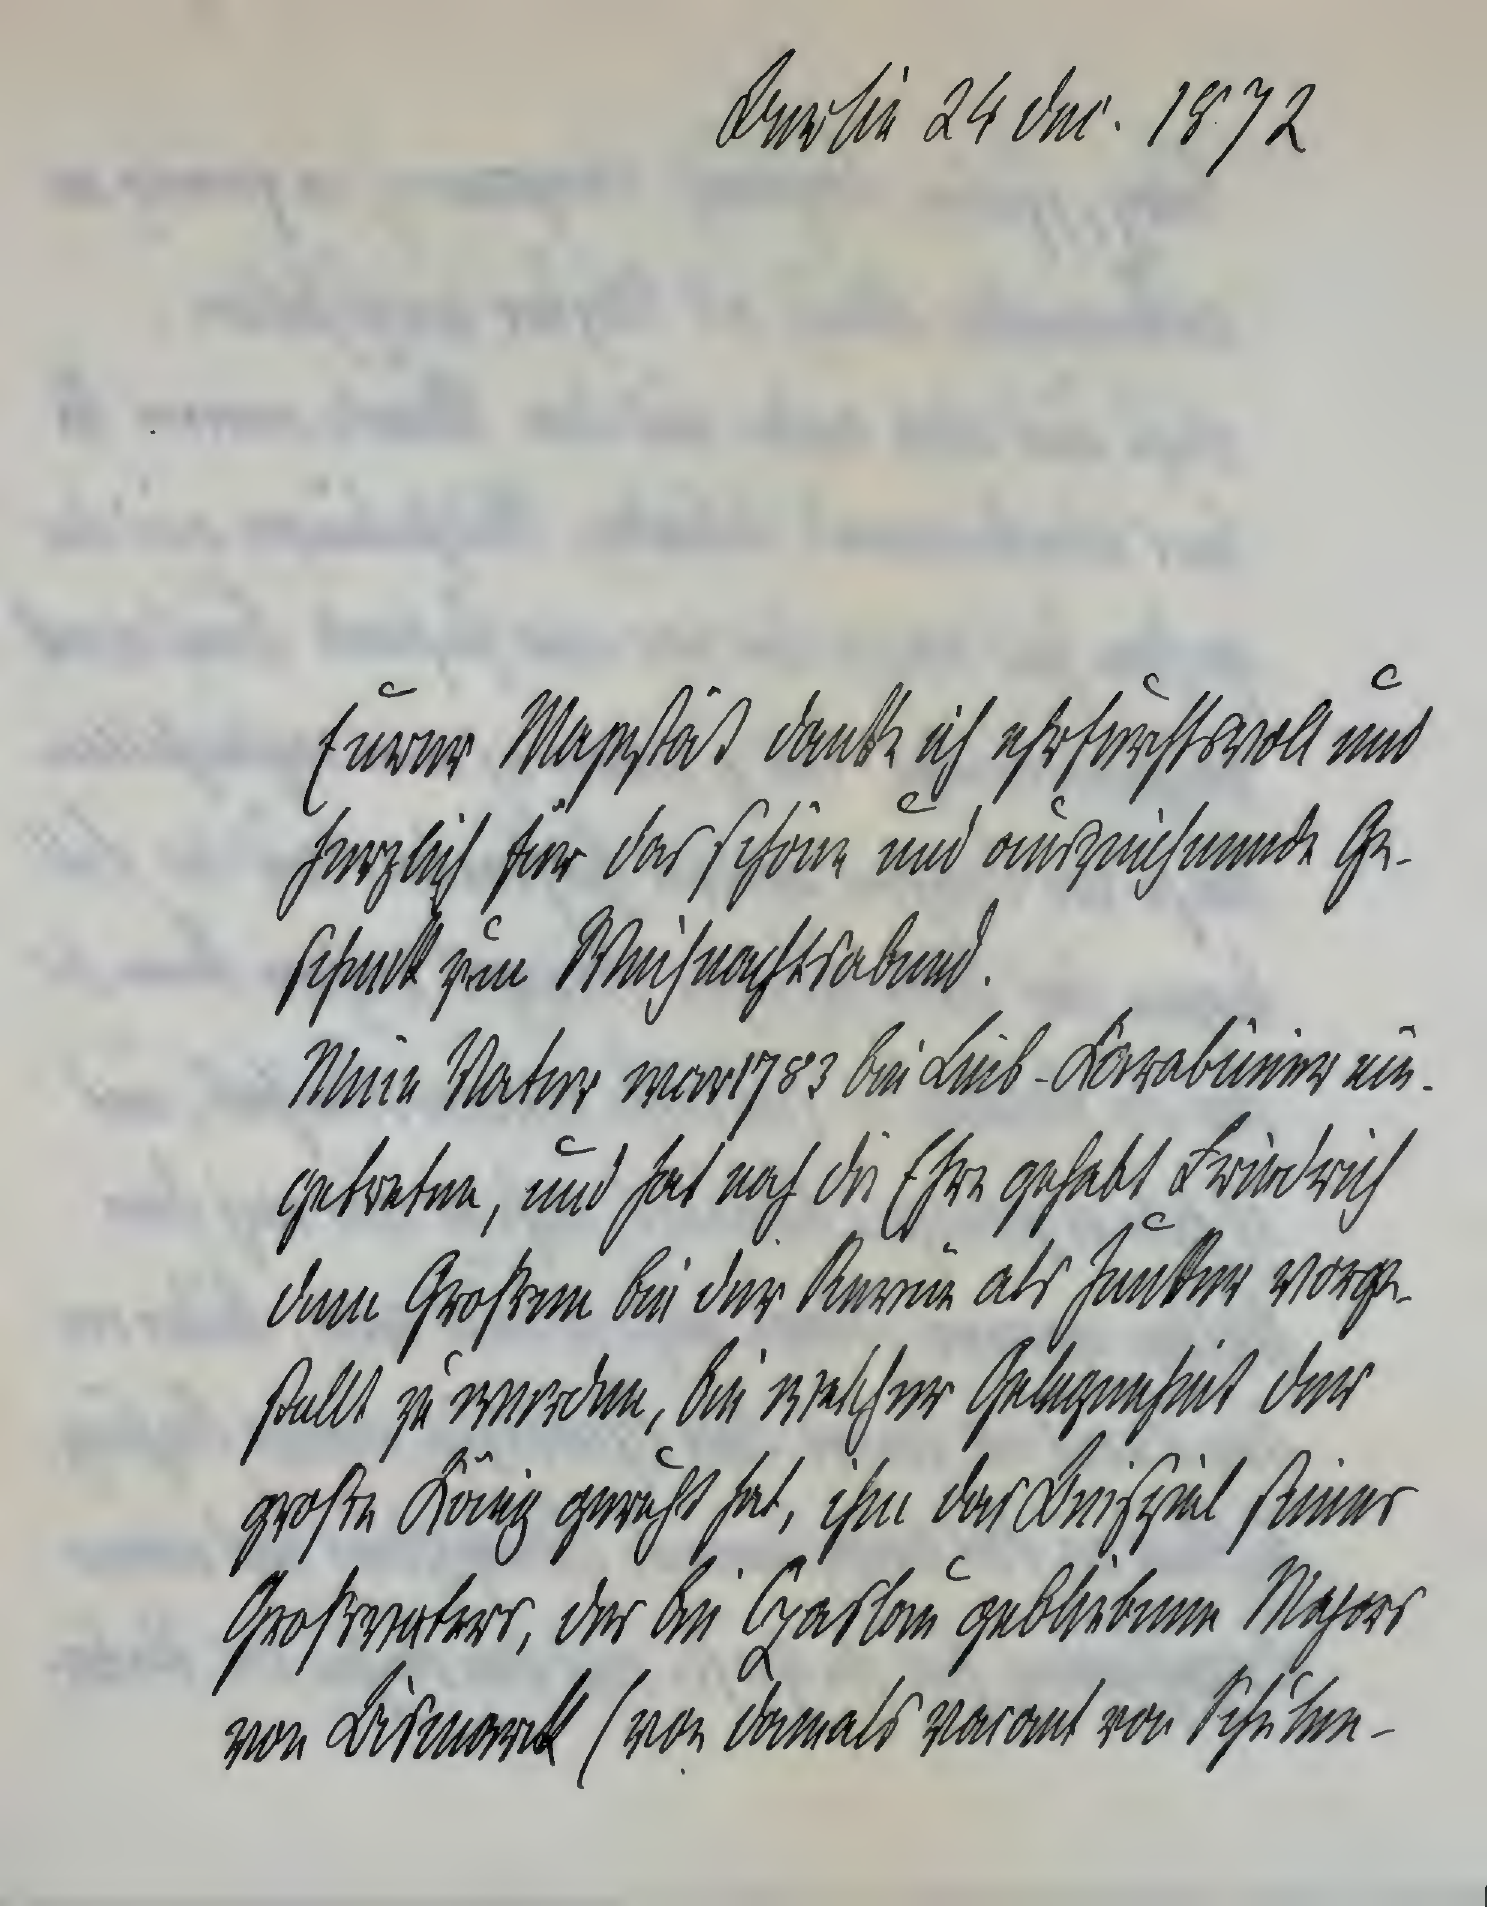 Berlin 24 Dec. 1872
Eurer Majestät danke ich ehrfurchtsvoll und
herzlich für das schöne und auszeichnende Ge-
schenk zum Weihnachtsabend.
Mein Vater war 1783 bei Leib-Karabinier ein-
getreten, und hat noch die Ehre gehabt Friedrich
dem Großen bei der Revüe als Junker vorge-
stellt zu werden, bei welcher Gelegenheit der
große König geruht hat, ihm das Beispiel seines
Großvaters, des bei Czaslau gebliebenen Majors
von Bismarck (von damals vacant von